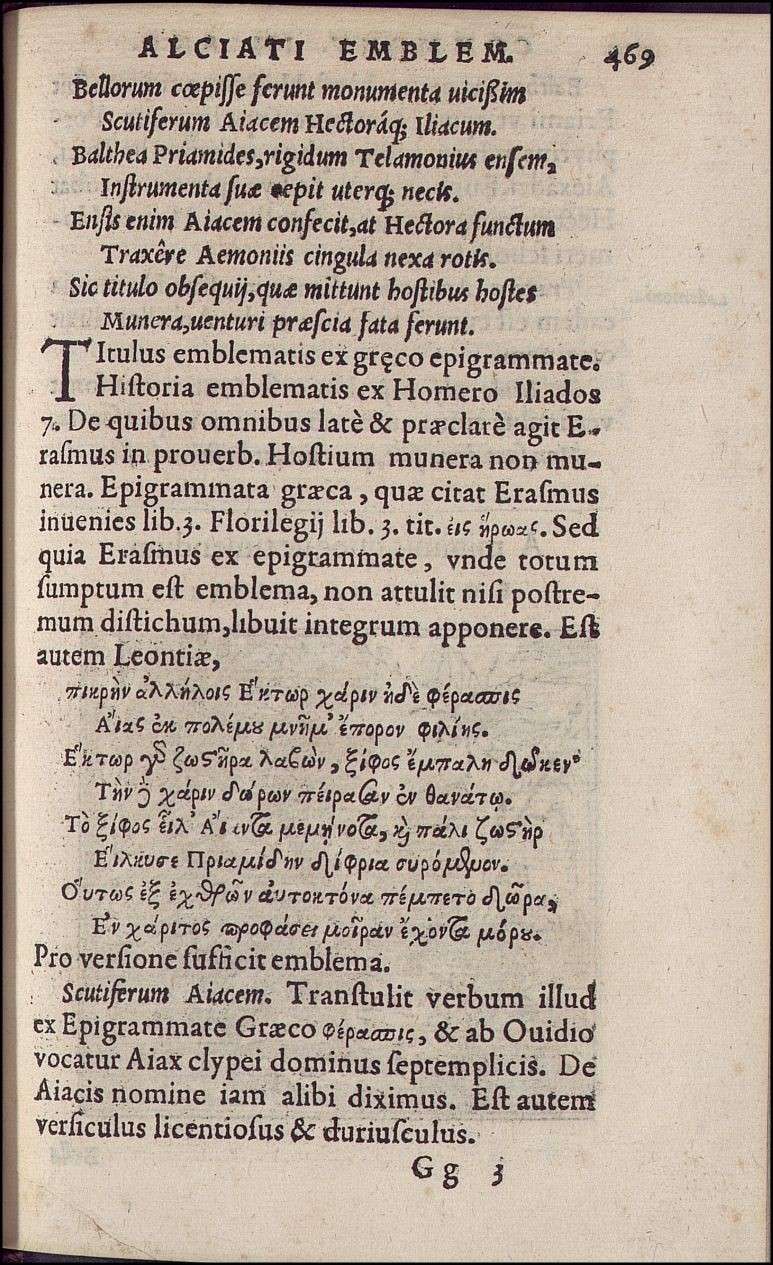 ALCIATI EMBLEM. 469
Bellorum cœpiſſe ferunt monumenta uicißim
Scutiferum Aiacem Hectoráq; Iliacum.
Balthea Priamides, rigidum Telamonius enſem,
Inſtrumenta ſuæ cepit uterq; necis.
Enſis enim Aiacem confecit, at Hectora functum
Traxêre Aemoniis cingula nexa rotis.
Sic titulo obſequij, quæ mittunt hoſtibus hoſtes
Munera, uenturi præſcia fata ferunt.
TItulus emblematis ex gręco epigrammate.
Hiſtoria emblematis ex Homero Iliados
7. De quibus omnibus latè & præclarè agit E-
raſmus in prouerb. Hoſtium munera non mu-
nera. Epigrammata græca, quæ citat Eraſmus
inuenies lib.3. Florilegij lib. 3. tit. εις ἥρωας. Sed
quia Eraſmus ex epigrammate, vnde totum
ſumptum eſt emblema, non attulit niſi poſtre-
mum diſtichum, libuit integrum apponere. Eſt
autem Leontiæ,
πικρὴν ἀλλήλοις Ἕκτωρ χάριν ἠδὲ φέρασπις
Αἴας ἐκ πολέμου μνῆμ' ἔπορον φιλίης.
Ἕκτωρ γὰρ ζωστῆρα λαβὼν, ξίφος ἔμπαλη δῶκεν·
Τὴν δὲ χάριν δώρων πείρασαν ἐν θανάτῳ.
Τὸ ξίφος εἷλ' Αἴαντα μεμηνότα, καὶ πάλι ζωστὴρ
Εἵλκυσε Πριαμίδην δίφρια συρόμενον.
Οὕτως ἐξ ἐχθρῶν αὐτοκτόνα πέμπετο δῶρα,
Ἐν χάριτος προφάσει μοῖραν ἔχοντα μόρου.
Pro verſione ſufficit emblema.
Scutiferum Aiacem. Tranſtulit verbum illud
ex Epigrammate Græco φέρασπις, & ab Ouidio
vocatur Aiax clypei dominus ſeptemplicis. De
Aiacis nomine iam alibi diximus. Eſt autem
verſiculus licentioſus & duriuſculus.
Gg 3